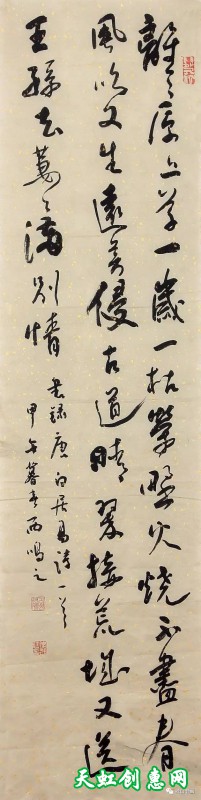 離々原上草一歲一枯榮野火燒不盡春
風吹又生遠芳侵古道晴翠接荒城又送
王孫去萋々滿別情
書録唐白居易詩一首
甲午暮春西鳴之
天虹创惠网